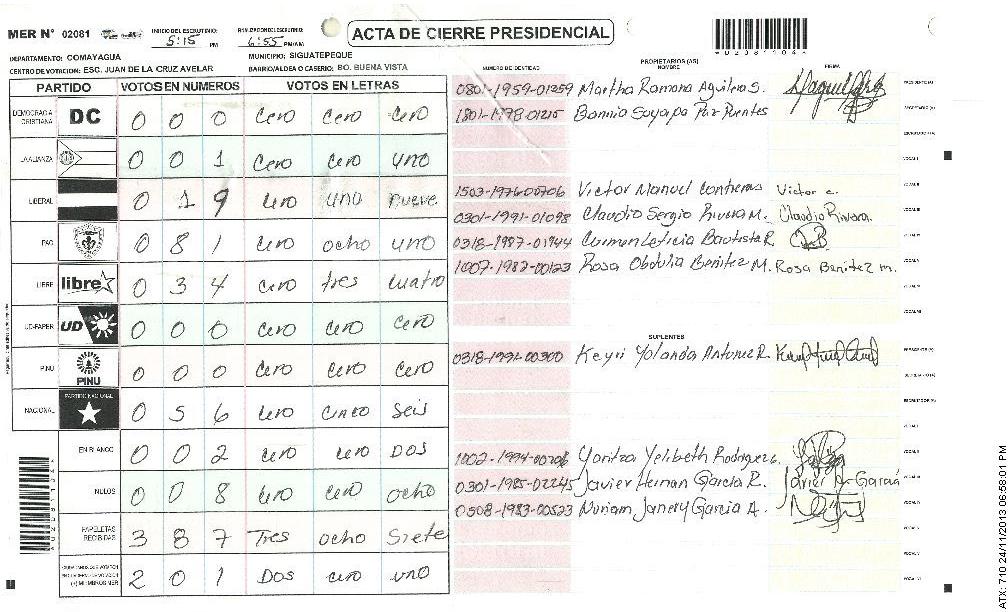 MER N° 02081
INICIO DEL ESCRUTINIO: 5:15 PM
FINALIZACION DEL ESCRUTINIO: 6:55 PM/AM
ACTA DE CIERRE PRESIDENCIAL
DEPARTAMENTO: COMAYAGUA
MUNICIPIO: SIGUATEPEQUE
CENTRO DE VOTCION: ESC. JUAN DE LA CRUZ AVELAR
BARRIO/ALDEA O CASERIO: BO. BUENA VISTA
PARTIDO VOTOS EN NUMEROS VOTOS EN LETRAS
DEMOCRACIA CRISTIANA DC 0 0 0 cero cero cero
LA ALIANZA 0 0 1 cero cero uno
LIBERAL 0 1 9 cero uno nueve
PAC 0 8 1 cero ocho uno
LIBRE libre 0 3 4 cero tres cuatro
UD-FAPER UD 0 0 0 cero cero cero
PINU PINU 0 0 0 cero cero cero
NACIONAL PARTIDO NACIONAL 0 5 6 cero cinco seis
EN BLANCO 0 0 2 cero cero DOS
NULOS 0 0 8 cero cero ocho
PAPELETAS RECIBIDAS 3 8 7 Tres ocho Siete
2 0 1 DOS cero uno
NUMERO DE IDENTIDAD PROPIETARIOS (AS) NOMBRE FIRMA
0801-1959-01259 Martha Ramona Aguilera S. PRESIDENTE(A)
SECRETARIO (A)
ESCRUTADOR (A)
VOCAL I
1503-1976-00706 Victor Manuel Contreras Victor c. VOCAL II
0301-1991-01098 Claudio Sergio Rivera M. Claudio Rivera. VOCAL III
0318-1987-01944 Carmen Leticia Bautista R. VOCAL IV
1007-1982-00123 Rosa Obdulia Benitez M. Rosa Benitez m. VOCAL V
VOCAL VI
VOCAL VII
SUPLENTES
0318-1991-00300 Keyri Yolanda Antunez R. PRESIDENTE (A)
SECRETARIO (A)
ESCRUTADOR (A)
1002-1994-00206 Yaritza Yelibeth Rodriguez
0301-1985-02245 Javier Hernan Garcia R. Javier A. Garcia
0508-1983-00523 Miriam Janery Garcia A.
ATX: 710 24/11/2013 06:58:01 PM